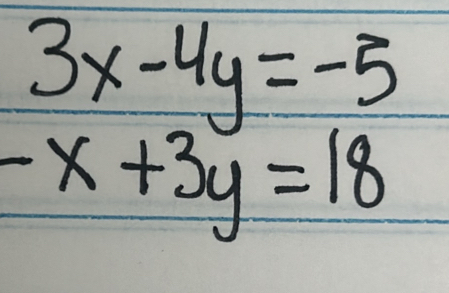 3x-4y=-5
-x+3y=18